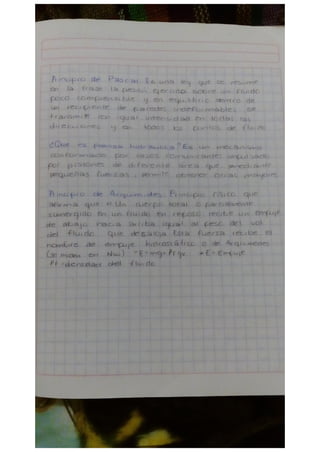 Principio de Pascal Es una ley que se resume
en la frase la presión ejercida sobre un fluido
poco compresible y en equilibrio dentro de
un recipiente de paredes indeformables se
transmite con igual intensidad en todas las
direcciones y en todos los puntos de fluido
¿Que es prensa hidraulica? Es un mecanismo
conformado por vasos comunicantes impulsado
por pistones de diferente area que mediante
pequeñas fuerzas, permite obtener otras mayores
Principio de Arquimedes Principio físico que
afirma que "Un cuerpo total o parcialmente
sumergido en un fluido en reposo recibe un empuje
de abajo hacia arriba igual al peso del vol
del fluido que desaloja Esta fuerza recibe el
nombre de empuje hidrostático o de Arquimedes
(se mide en Nw) E=mg= *E=Empuje
Pf=densidad del fluido